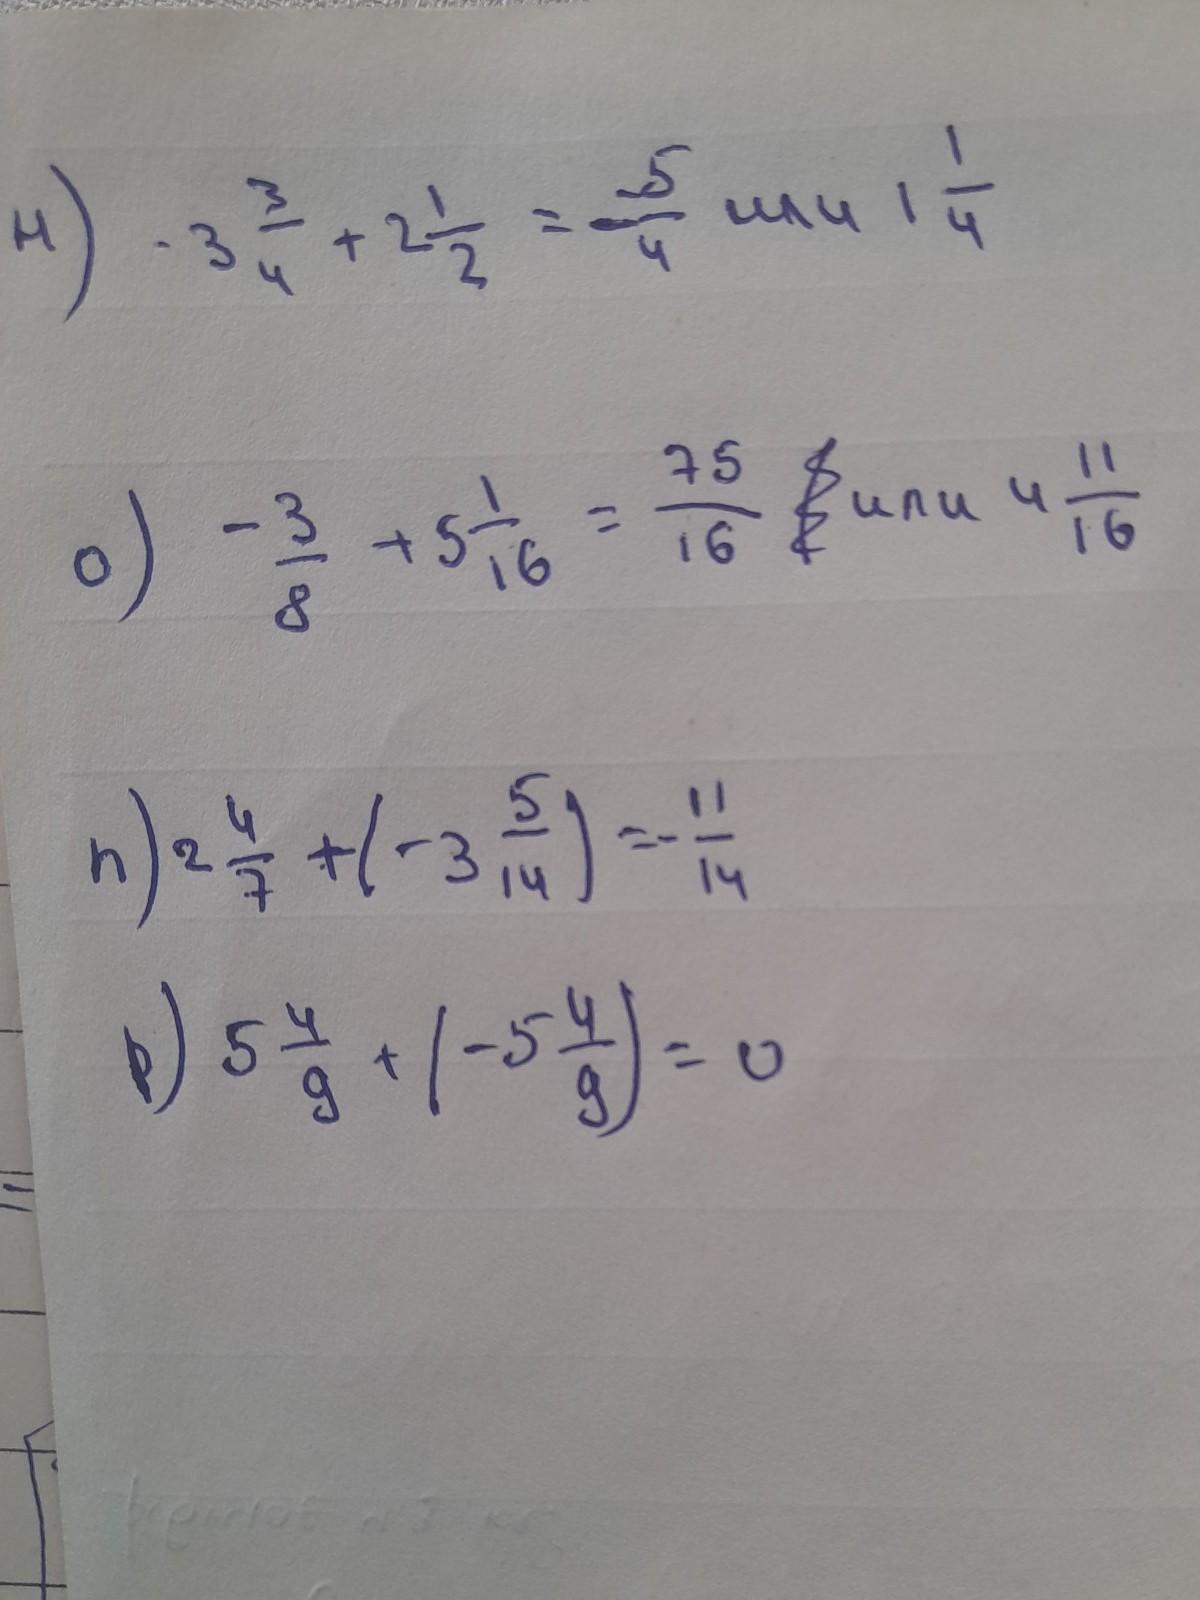 н) -3 3/4 + 2 1/2 = -5/4 или 1 1/4
о) -3/8 + 5 1/16 = 75/16 или 4 11/16
п) 2 4/7 + (-3 5/14) = -11/14
р) 5 4/9 + (-5 4/9) = 0